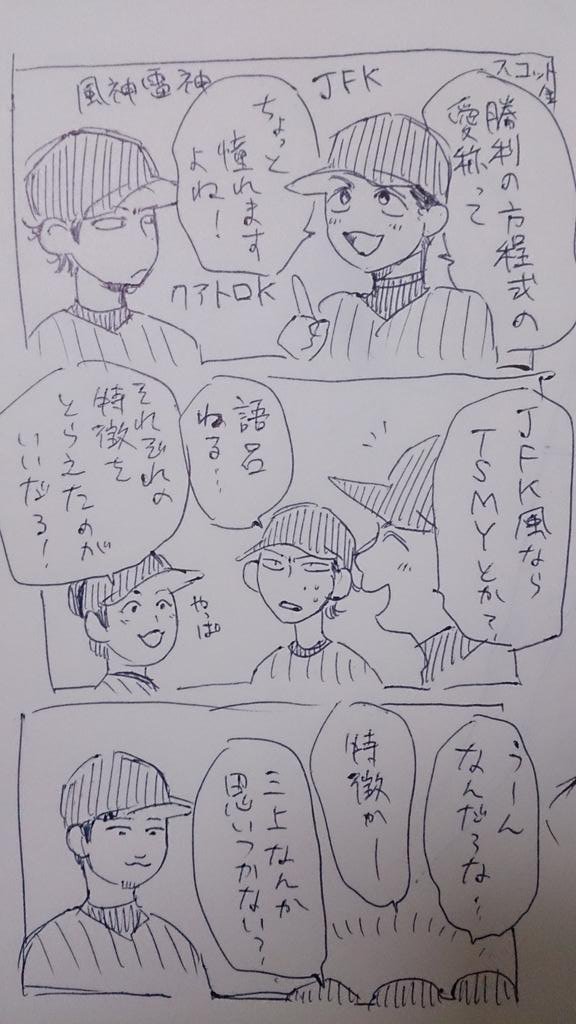 スコット
勝利の方程式の
愛称って
JFK
ちょっと
憧れます
よね!
風神雷神
クアトロK
JFK風なら
TSMYとか?
語呂
わる…
やっぱ
それぞれの
特徴を
とらえたのが
いいだろ!
うーん
なんだろな…
特徴かー
三上なんか
思いつかない?